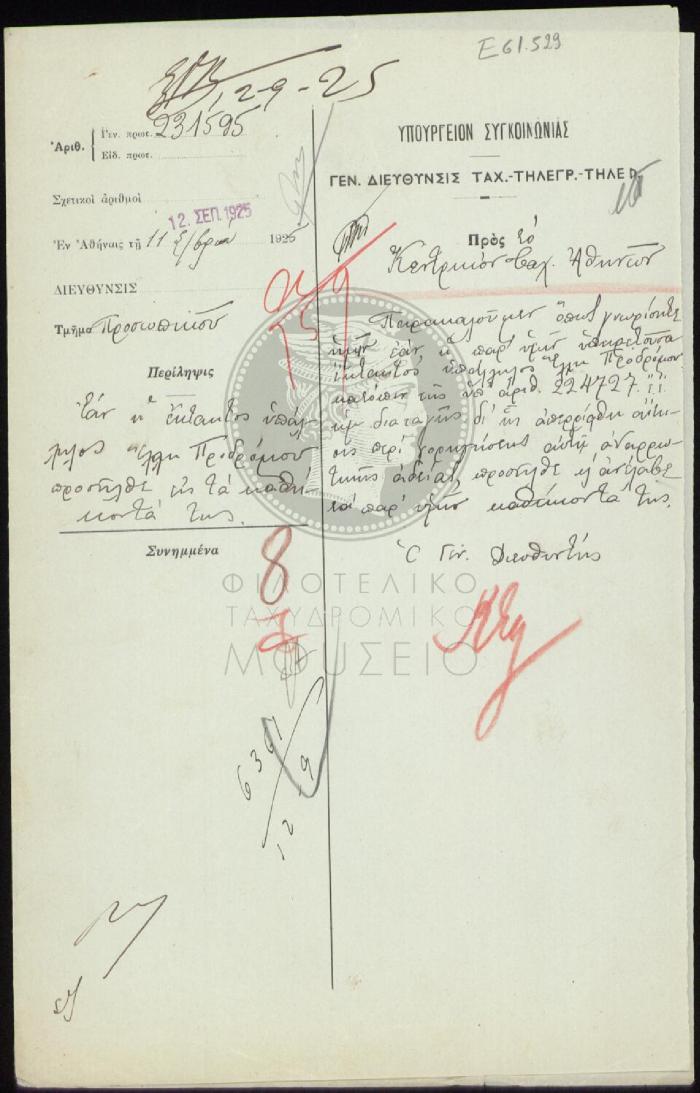 Ε61.529
12-9-25
Ἀριθ.
Γεν. πρωτ. 231595
Εἰδ. πρωτ.
Σχετικοὶ ἀριθμοὶ
12. ΣΕΠ. 1925
Ἐν Ἀθήναις τῇ 11 7/βρίου 1925
ΔΙΕΥΘΥΝΣΙΣ
Τμῆμα Προσωπικοῦ
Περίληψις
Ἐὰν ἡ ἔκτακτος ὑπάλ-
ληλος Προδρόμου
προσῆλθε εἰς τὰ καθή-
κοντά της.
Συνημμένα
ΥΠΟΥΡΓΕΙΟΝ ΣΥΓΚΟΙΝΩΝΙΑΣ
ΓΕΝ. ΔΙΕΥΘΥΝΣΙΣ ΤΑΧ.-ΤΗΛΕΓΡ.-ΤΗΛΕΦ.
Πρὸς τὸ
Κεντρικὸν Ταχ. Ἀθηνῶν
Παρακαλοῦμεν ὅπως γνωρίσητε
ἡμῖν ἐὰν ἡ παρ' ὑμῖν ὑπηρετοῦσα
ἔκτακτος ὑπάλληλος Προδρόμου
κατόπιν τῆς ὑπ' ἀριθ. 224727
διαταγῆς δι' ἧς ἀπερρίφθη αἴτη-
σις περὶ χορηγήσεως αὐτῇ ἀναρρω-
τικῆς ἀδείας, προσῆλθε κ' ἀνέλαβε
τὰ παρ' ὑμῖν καθήκοντά της.
Ὁ Γεν. Διευθυντής
8
ΦΙΛΟΤΕΛΙΚΟ
ΤΑΧΥΔΡΟΜΙΚΟ
ΜΟΥΣΕΙΟ
639
12 9